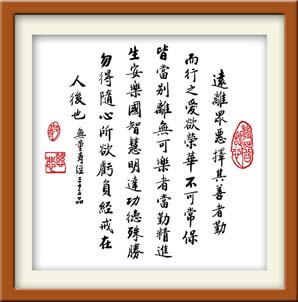 遠離眾惡擇其善者勤
而行之愛欲榮華不可常保
皆當別離無可樂者當勤精進
生安樂國智慧明達功德殊勝
勿得隨心所欲虧負經戒在
人後也 無量壽經三十三品